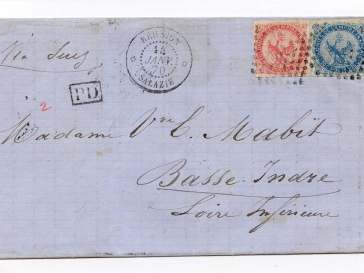 Via Suez
RÉUNION
14
JANV
70
SALAZIE
PD
2
Madame Vve C. Mabit
Basse-Indre
Loire Inférieure